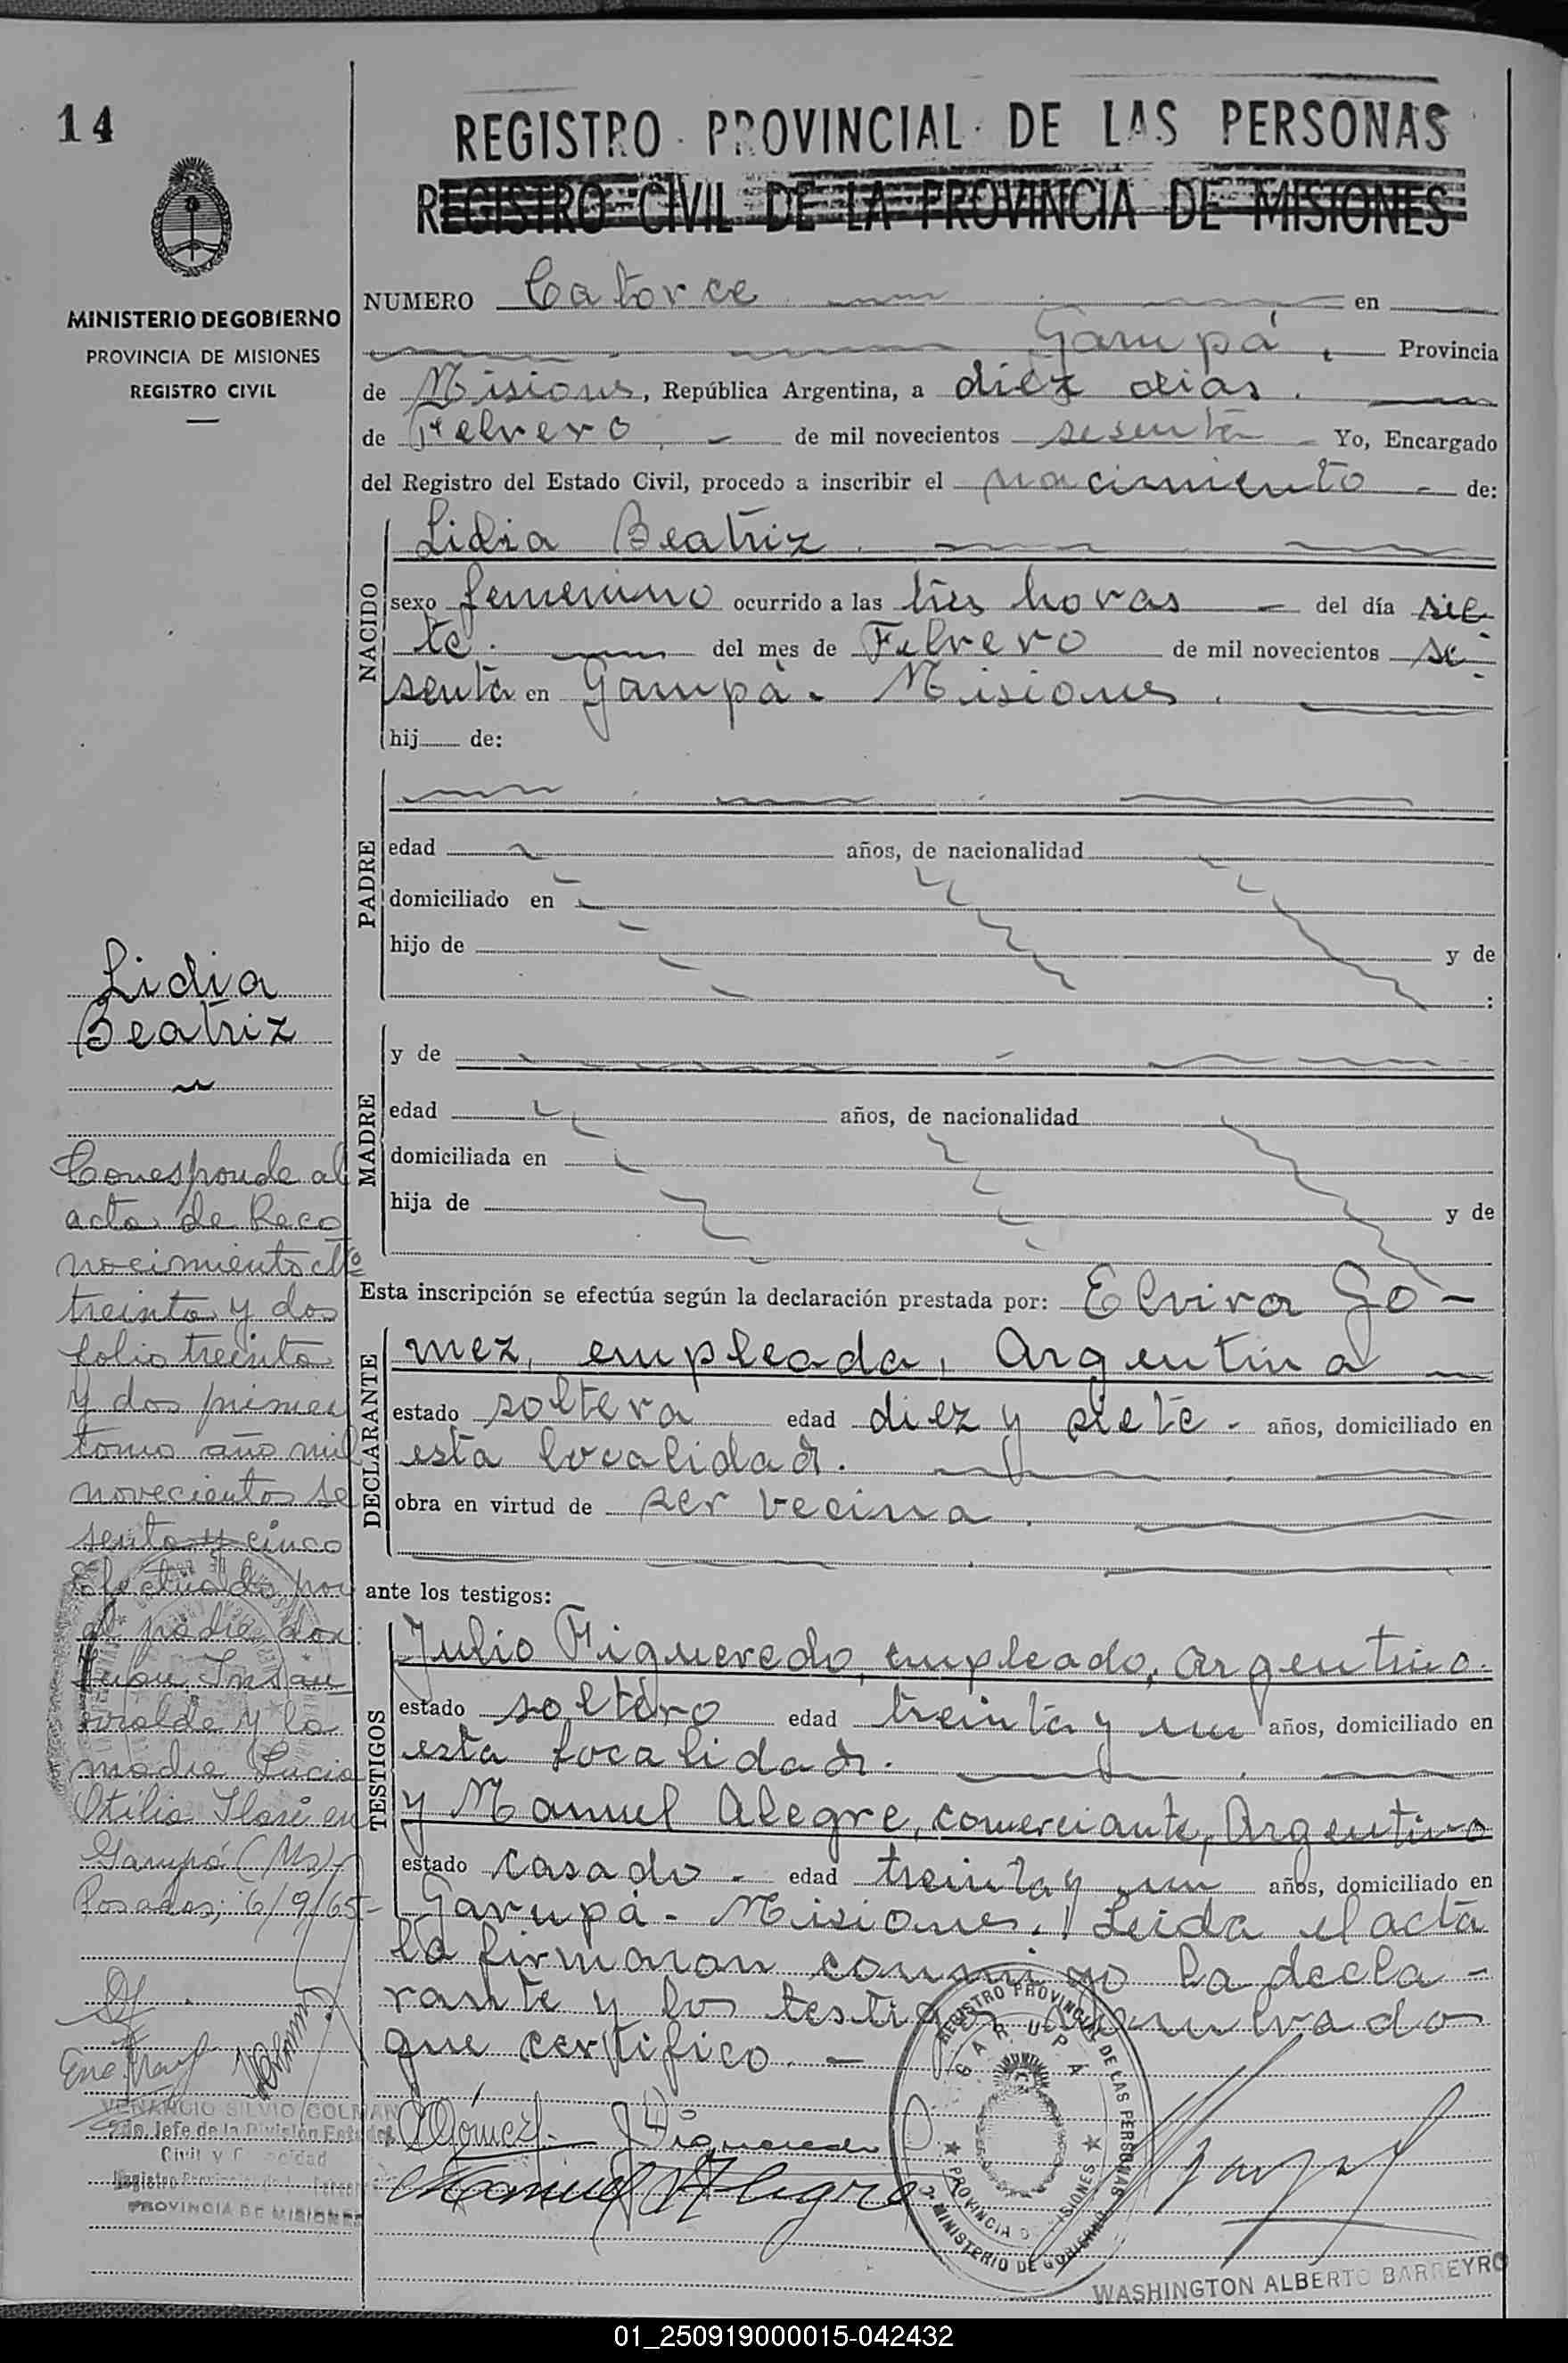 14
REGISTRO PROVINCIAL DE LAS PERSONAS
REGISTRO CIVIL DE LA PROVINCIA DE MISIONES
MINISTERIO DE GOBIERNO
PROVINCIA DE MISIONES
REGISTRO CIVIL
NUMERO Catorce en
Garupá, Provincia
de Misiones, República Argentina, a diez dias
de Febrero de mil novecientos sesenta Yo, Encargado
del Registro del Estado Civil, procedo a inscribir el nacimiento de:
NACIDO
Lidia Beatriz
sexo femenino ocurrido a las tres horas del día sie-
te. del mes de Febrero de mil novecientos se-
senta en Garupá. Misiones.
hij de:
PADRE
edad años, de nacionalidad
domiciliado en
hijo de y de
:
MADRE
y de
edad años, de nacionalidad
domiciliada en
hija de y de
Esta inscripción se efectúa según la declaración prestada por: Elvira Gó-
DECLARANTE
mez, empleada, Argentina
estado soltera edad diez y siete - años, domiciliado en
esta localidad.
obra en virtud de ser vecina.
ante los testigos:
TESTIGOS
Julio Figueredo, empleado, Argentino.
estado soltero edad treinta y un años, domiciliado en
esta localidad.
y Manuel Alegre, comerciante, Argentino
estado casado - edad treinta y un años, domiciliado en
Garupá - Misiones. Leida el acta
la firmaron conmigo la decla-
rante y los testigos
que certifico. -
EGómez J Figueredo
Manuel Alegre
REGISTRO PROVINCIAL DE LAS PERSONAS
GARUPÁ
PROVINCIA DE MISIONES
MINISTERIO DE GOBIERNO
WASHINGTON ALBERTO BARREYRO
Lidia
Beatriz
Corresponde al
acta de Reco
nocimiento Nº
treinta y dos
folio treinta
y dos primer
tomo año mil
novecientos se
senta y cinco
Efectuado por
el padre don:
Juan Insau
rralde y la
madre Lucia
Otilia en
Garupá (Ms)
Posadas, 6/9/65-
VENANCIO SILVIO COLMAN
2do. Jefe de la División Estado
Civil y Capacidad
Registro Provincial de las Personas
PROVINCIA DE MISIONES
01_250919000015-042432